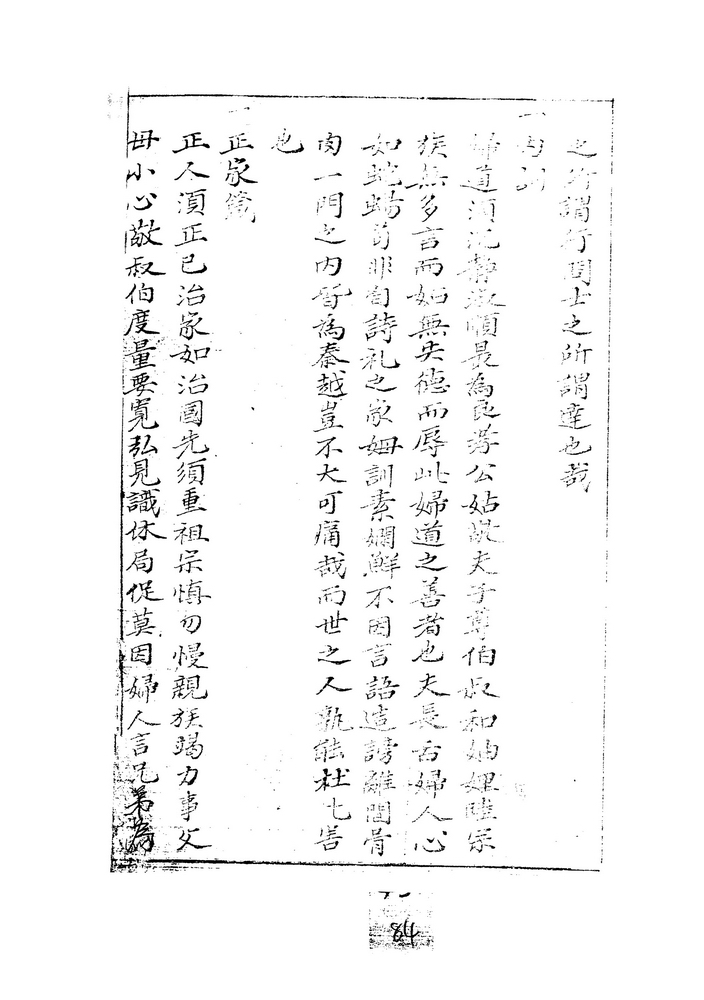 之所謂行間士之所謂達也哉
一內訓
婦道須沉靜淑順最為良孝公姑說夫子尊伯叔和妯娌睦宗
族無多言而妬無失德而辱此婦道之善者也夫長舌婦人心
如蛇蝎苟非自詩礼之家姆訓素嫻鮮不因言語造謗離間骨
肉一門之內胥為秦越豈不大可痛哉而世之人孰能杜七害
也
一正家箴
正人須正己治家如治國先須重祖宗慎勿慢親族竭力事父
母小心敬叔伯度量要寬弘見識休局促莫因婦人言兄弟為